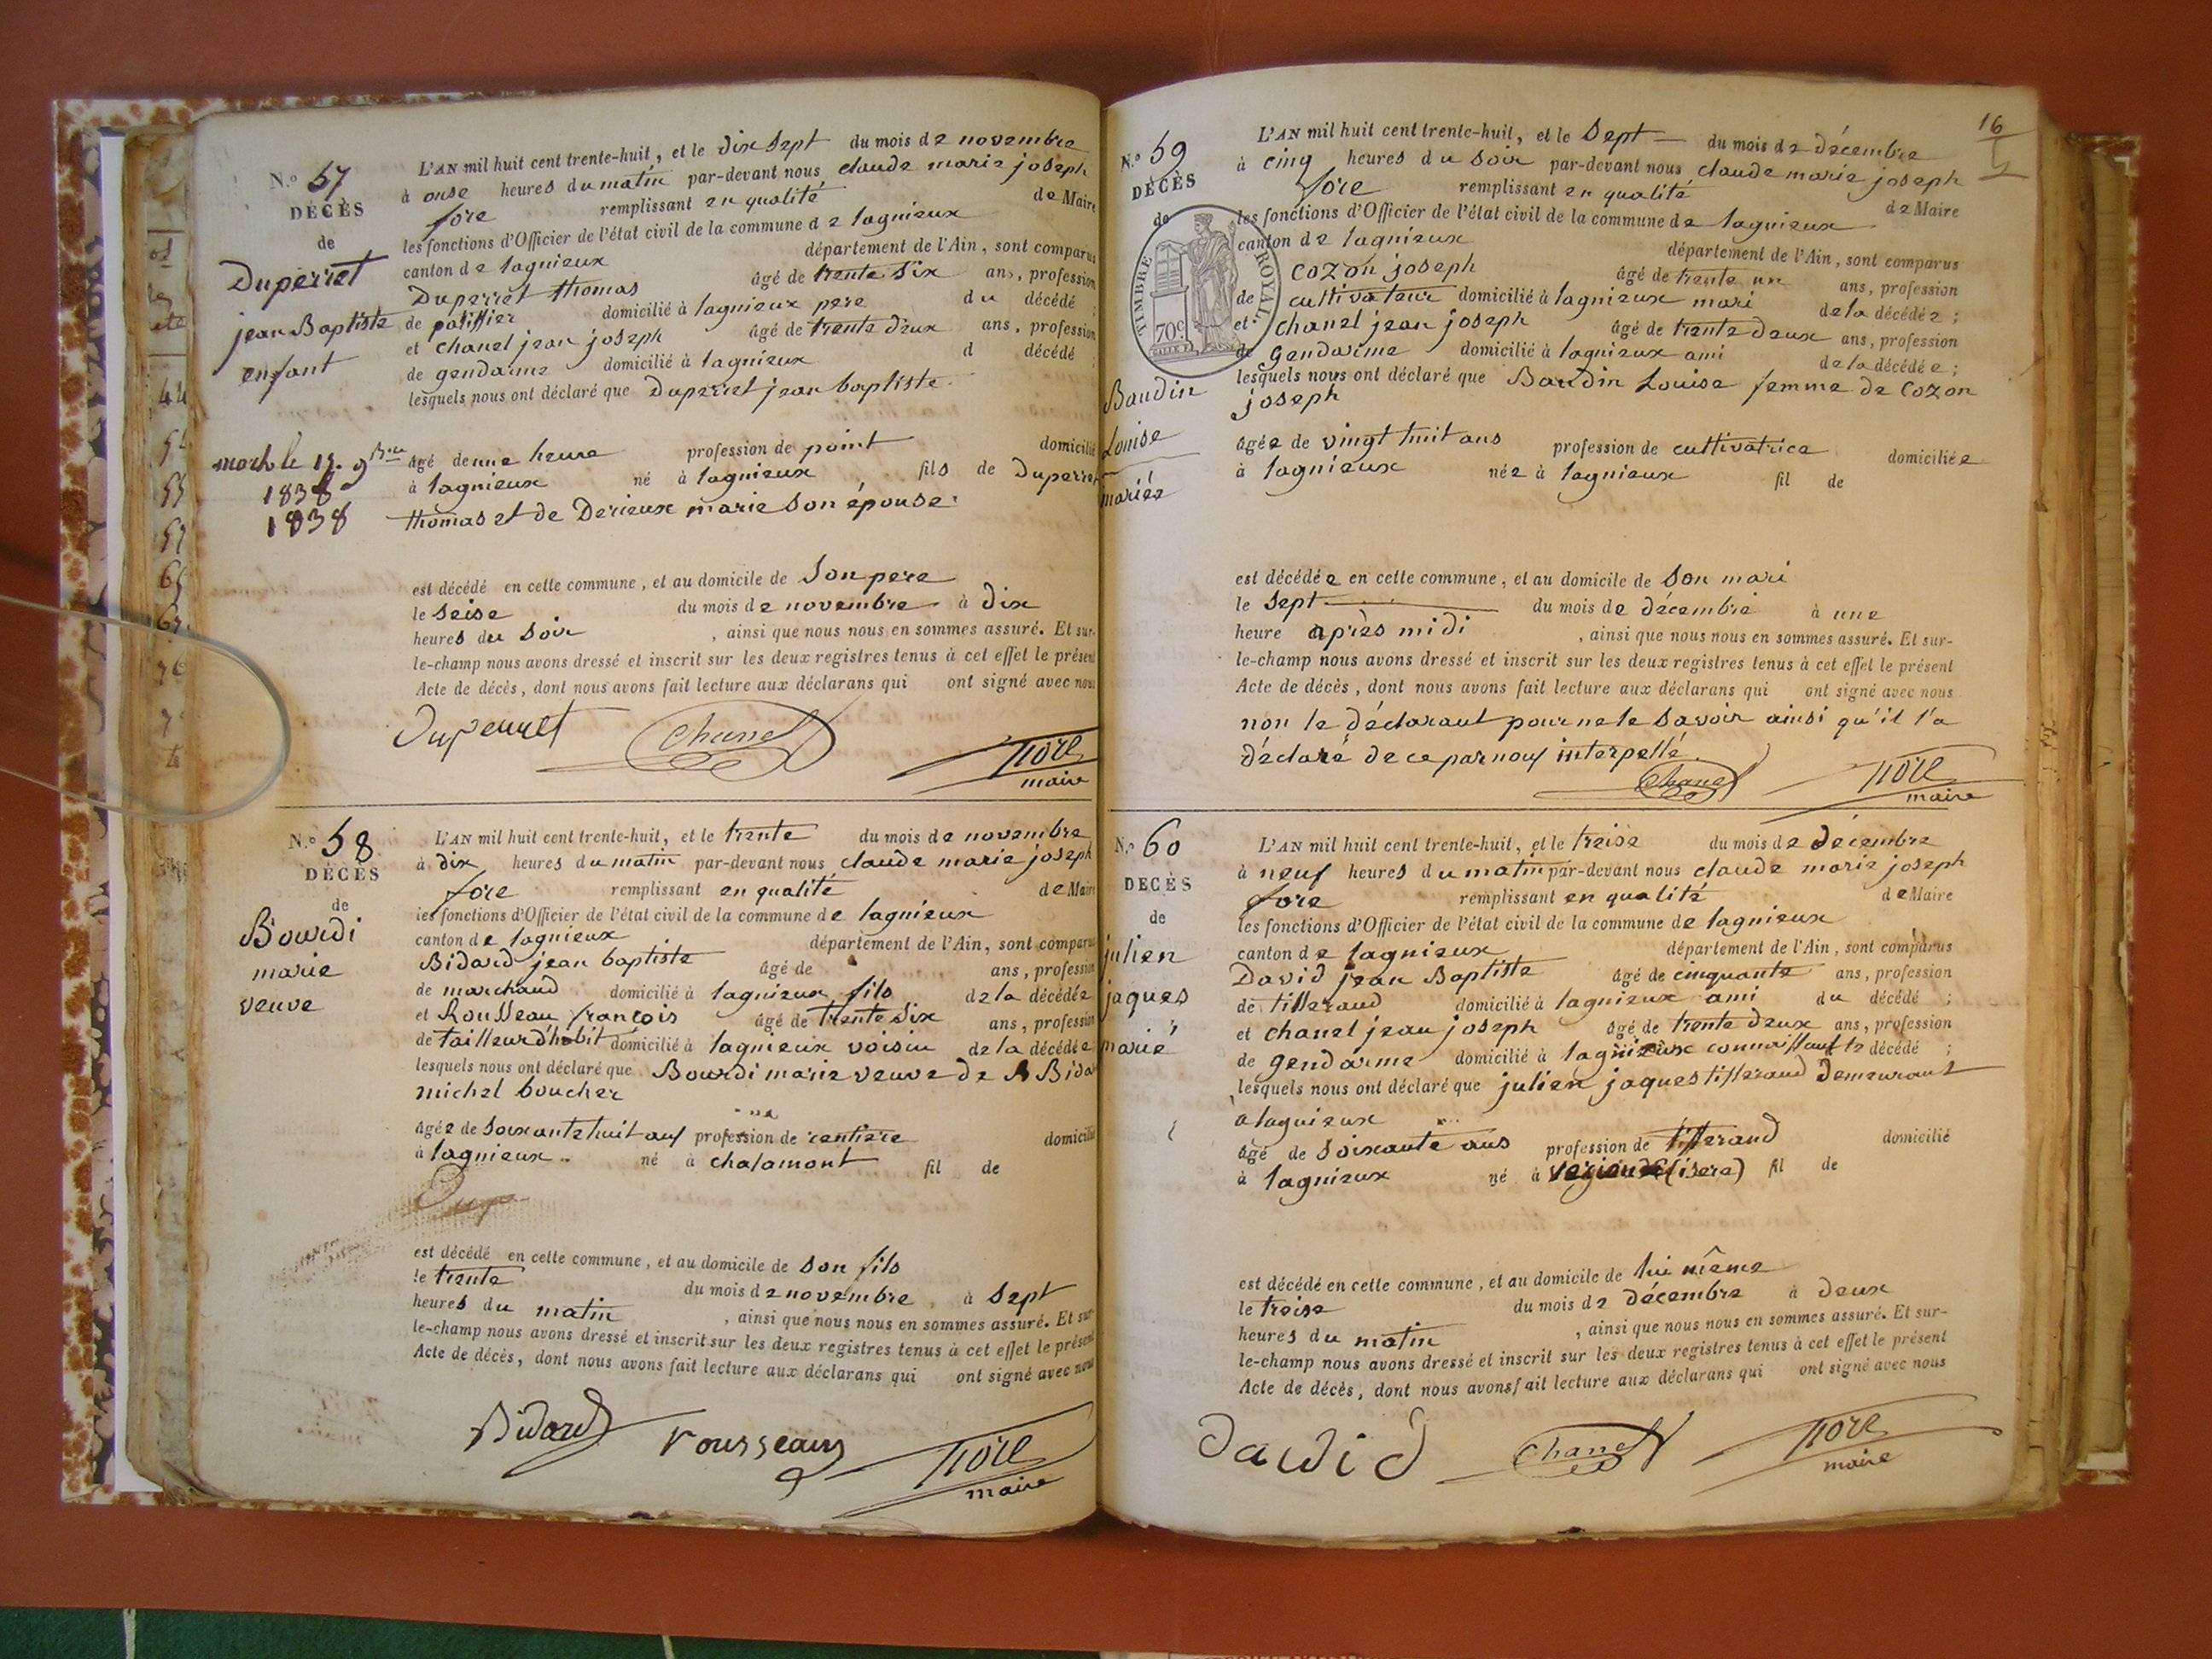 N.o 57
DÉCÈS
de
Duperret
jean Baptiste
enfant
1838
1838
L'AN mil huit cent trente-huit, et le dix sept du mois de novembre
à onse heures du matin par-devant nous claude marie joseph
fore remplissant en qualité de Maire
les fonctions d'Officier de l'état civil de la commune de lagnieux
canton de lagnieux département de l'Ain, sont comparus
Duperret thomas âgé de trente six ans, profession
de patissier domicilié à lagnieux pere du décédé ;
et chanel jean joseph âgé de trente deux ans, profession
de gendarme domicilié à lagnieux d décédé ;
lesquels nous ont déclaré que Duperret jean baptiste
âgé de une heure profession de point domicilié
à lagnieux né à lagnieux fils de Duperret
thomas et de Derieux marie son épouse
est décédé en cette commune, et au domicile de son pere
le seise du mois de novembre à dix
heures du soir , ainsi que nous nous en sommes assuré. Et sur-
le-champ nous avons dressé et inscrit sur les deux registres tenus à cet effet le présent
Acte de décès, dont nous avons fait lecture aux déclarans qui ont signé avec nous
Duperret Chanel fore
maire
N.o 58
DÉCÈS
de
Bourdi
marie
veuve
L'AN mil huit cent trente-huit, et le trente du mois de novembre
à dix heures du matin par-devant nous claude marie joseph
fore remplissant en qualité de Maire
les fonctions d'Officier de l'état civil de la commune de lagnieux
canton de lagnieux département de l'Ain, sont comparus
Bidard jean baptiste âgé de ans, profession
de marchand domicilié à lagnieux fils de la décédée
et Rousseau françois âgé de trente six ans, profession
de tailleur d'habit domicilié à lagnieux voisin de la décédée
lesquels nous ont déclaré que Bourdi marie veuve de Bida
michel boucher
âgée de soixante huit ans profession de rentiere domicilié
à lagnieux né à chalamont fil de
est décédé en cette commune, et au domicile de son fils
le trente du mois de novembre à sept
heures du matin , ainsi que nous nous en sommes assuré. Et sur-
le-champ nous avons dressé et inscrit sur les deux registres tenus à cet effet le présent
Acte de décès, dont nous avons fait lecture aux déclarans qui ont signé avec nous
Bidard rousseau fore
maire
16
N.o 59
DÉCÈS
de
TIMBRE ROYAL
70c
Baudin
Louise
mariée
L'AN mil huit cent trente-huit, et le sept du mois de décembre
à cinq heures du soir par-devant nous claude marie joseph
fore remplissant en qualité de Maire
les fonctions d'Officier de l'état civil de la commune de lagnieux
canton de lagnieux département de l'Ain, sont comparus
cozon joseph âgé de trente un ans, profession
de cultivateur domicilié à lagnieux mari de la décédée ;
et chanel jean joseph âgé de trente deux ans, profession
de gendarme domicilié à lagnieux ami de la décédée ;
lesquels nous ont déclaré que Baudin Louise femme de cozon
joseph
âgée de vingt huit ans profession de cultivatrice domiciliée
à lagnieux née à lagnieux fil de
est décédée en cette commune, et au domicile de son mari
le sept du mois de décembre à une
heure après midi , ainsi que nous nous en sommes assuré. Et sur-
le-champ nous avons dressé et inscrit sur les deux registres tenus à cet effet le présent
Acte de décès, dont nous avons fait lecture aux déclarans qui ont signé avec nous
non le déclarant pour ne le savoir ainsi qu'il l'a
déclaré de ce par nous interpellé
Chanel fore
maire
N.o 60
DÉCÈS
de
julien
jaques
marié
L'AN mil huit cent trente-huit, et le treise du mois de décembre
à neuf heures du matin par-devant nous claude marie joseph
fore remplissant en qualité de Maire
les fonctions d'Officier de l'état civil de la commune de lagnieux
canton de lagnieux département de l'Ain, sont comparus
David jean Baptiste âgé de cinquante ans, profession
de tisserand domicilié à lagnieux ami du décédé ;
et chanel jean joseph âgé de trente deux ans, profession
de gendarme domicilié à lagnieux connaissant le décédé ;
lesquels nous ont déclaré que julien jaques tisserand demeurant
a lagnieux
âgé de soixante ans profession de tisserand domicilié
à lagnieux né à (isere) fil de
est décédé en cette commune, et au domicile de lui même
le treise du mois de décembre à deux
heures du matin , ainsi que nous nous en sommes assuré. Et sur-
le-champ nous avons dressé et inscrit sur les deux registres tenus à cet effet le présent
Acte de décès, dont nous avons fait lecture aux déclarans qui ont signé avec nous
david Chanel fore
maire